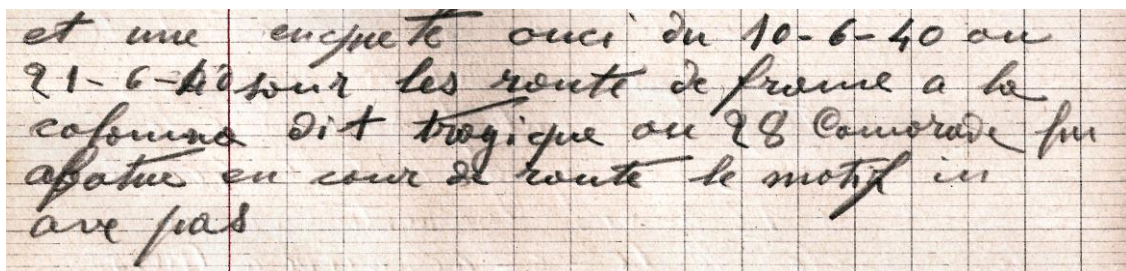 et une enquete ouci du 10-6-40 au
21-6-40 sour les route de france a la
colonna dit tragique ou 28 Camarade fu
abatue en cour de route le motif in
ave pas